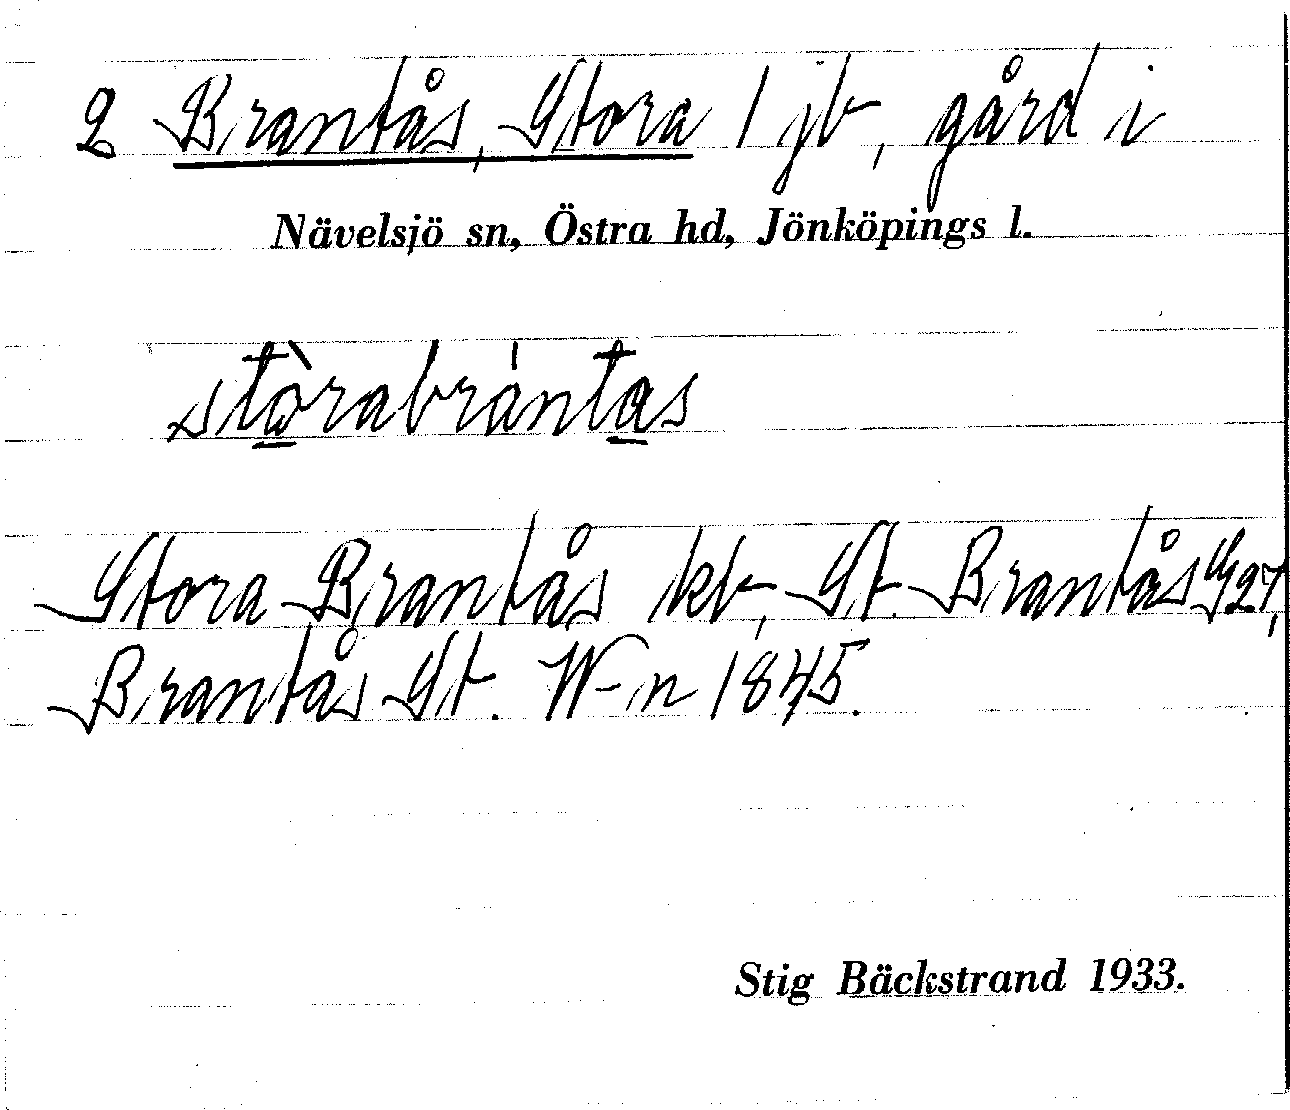 2 Brantås, Stora 1 jb, gård i
Nävelsjö sn, Östra hd, Jönköpings l.
stòrabrántas
Stora Brantås kb, St. Brantås G 27,
Brantås St. W-n 1845.
Stig Bäckstrand 1933.